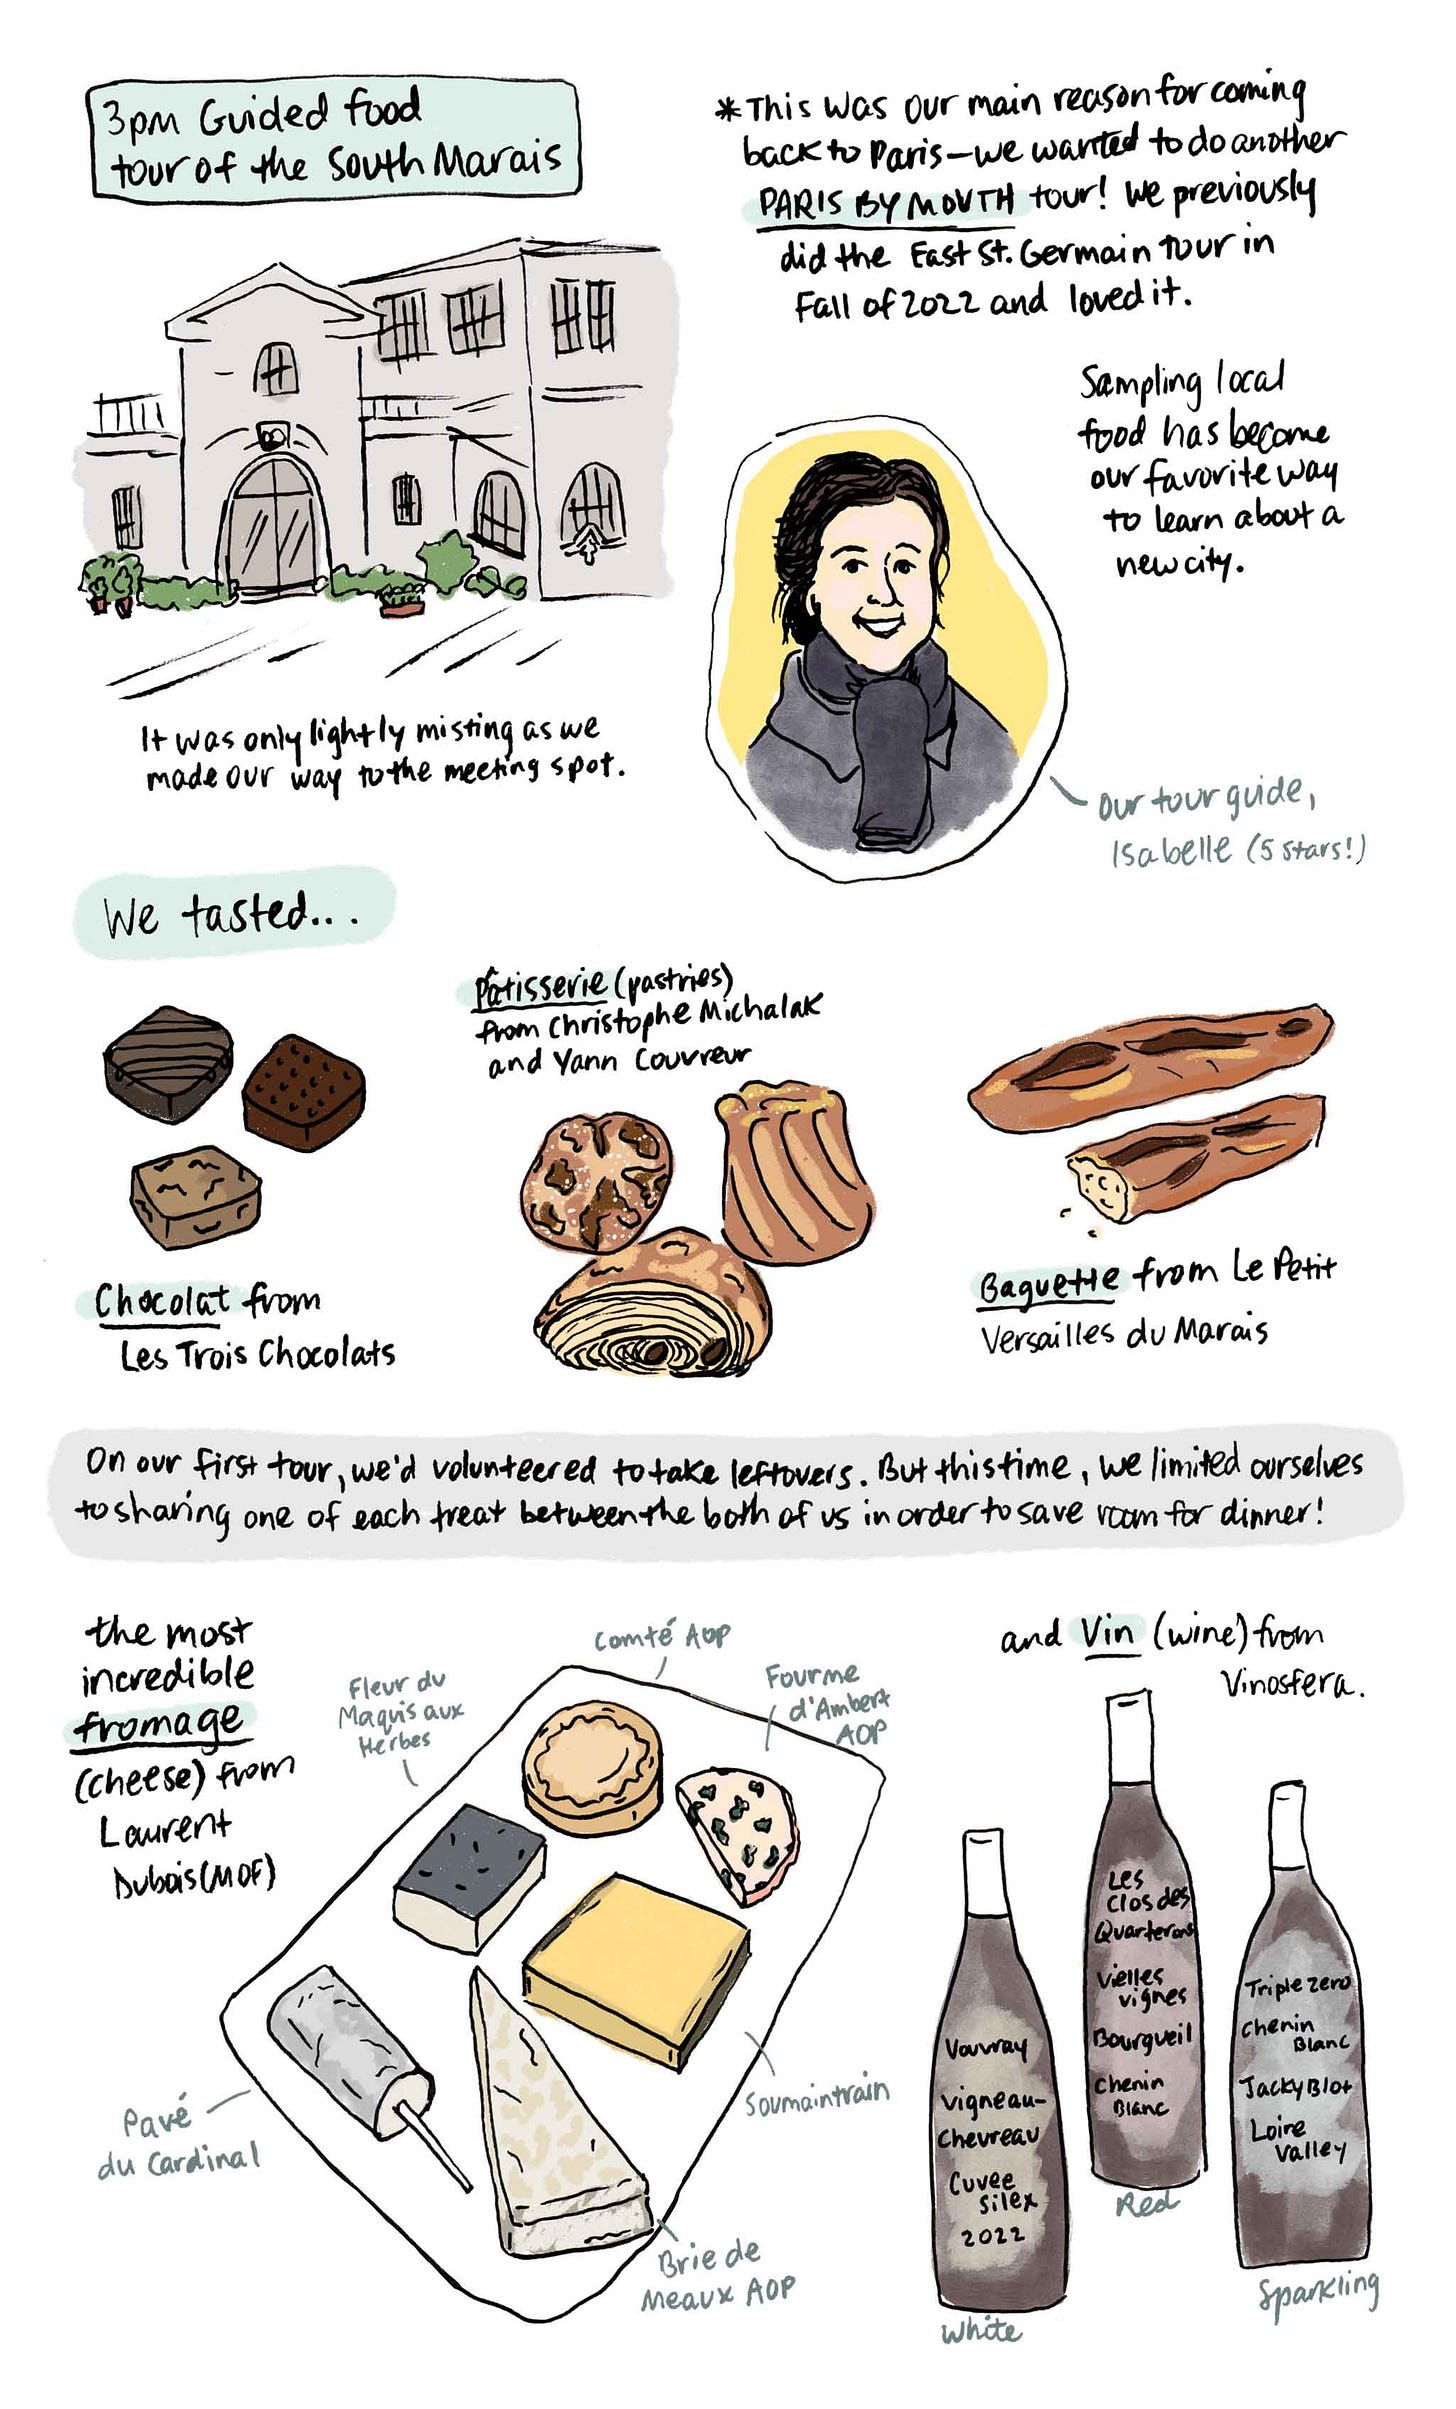 3pm Guided food
tour of the South Marais
*This was our main reason for coming
back to Paris—we wanted to do another
PARIS BY MOUTH tour! We previously
did the East St. Germain tour in
Fall of 2022 and loved it.
Sampling local
food has become
our favorite way
to learn about a
new city.
It was only lightly misting as we
made our way to the meeting spot.
our tour guide,
Isabelle (5 stars!)
We tasted...
Pâtisserie (pastries)
from Christophe Michalak
and Yann Couvreur
Chocolat from
Les Trois Chocolats
Baguette from Le Petit
Versailles du Marais
On our first tour, we'd volunteered to take leftovers. But this time, we limited ourselves
to sharing one of each treat between the both of us in order to save room for dinner!
the most
incredible
fromage
(cheese) from
Laurent
Dubois (MOF)
Comté AOP
Fleur du
Maquis aux
Herbes
Fourme
d'Ambert
AOP
Pavé
du Cardinal
Soumaintrain
Brie de
Meaux AOP
and Vin (wine) from
Vinosfera.
Vouvray
Vigneau-
Chevreau
Cuvee
Silex
2022
White
Les
Clos des
Quarterons
Vielles
vignes
Bourgueil
Chenin
Blanc
Red
Triple zero
Chenin
Blanc
Jacky Blot
Loire
Valley
Sparkling